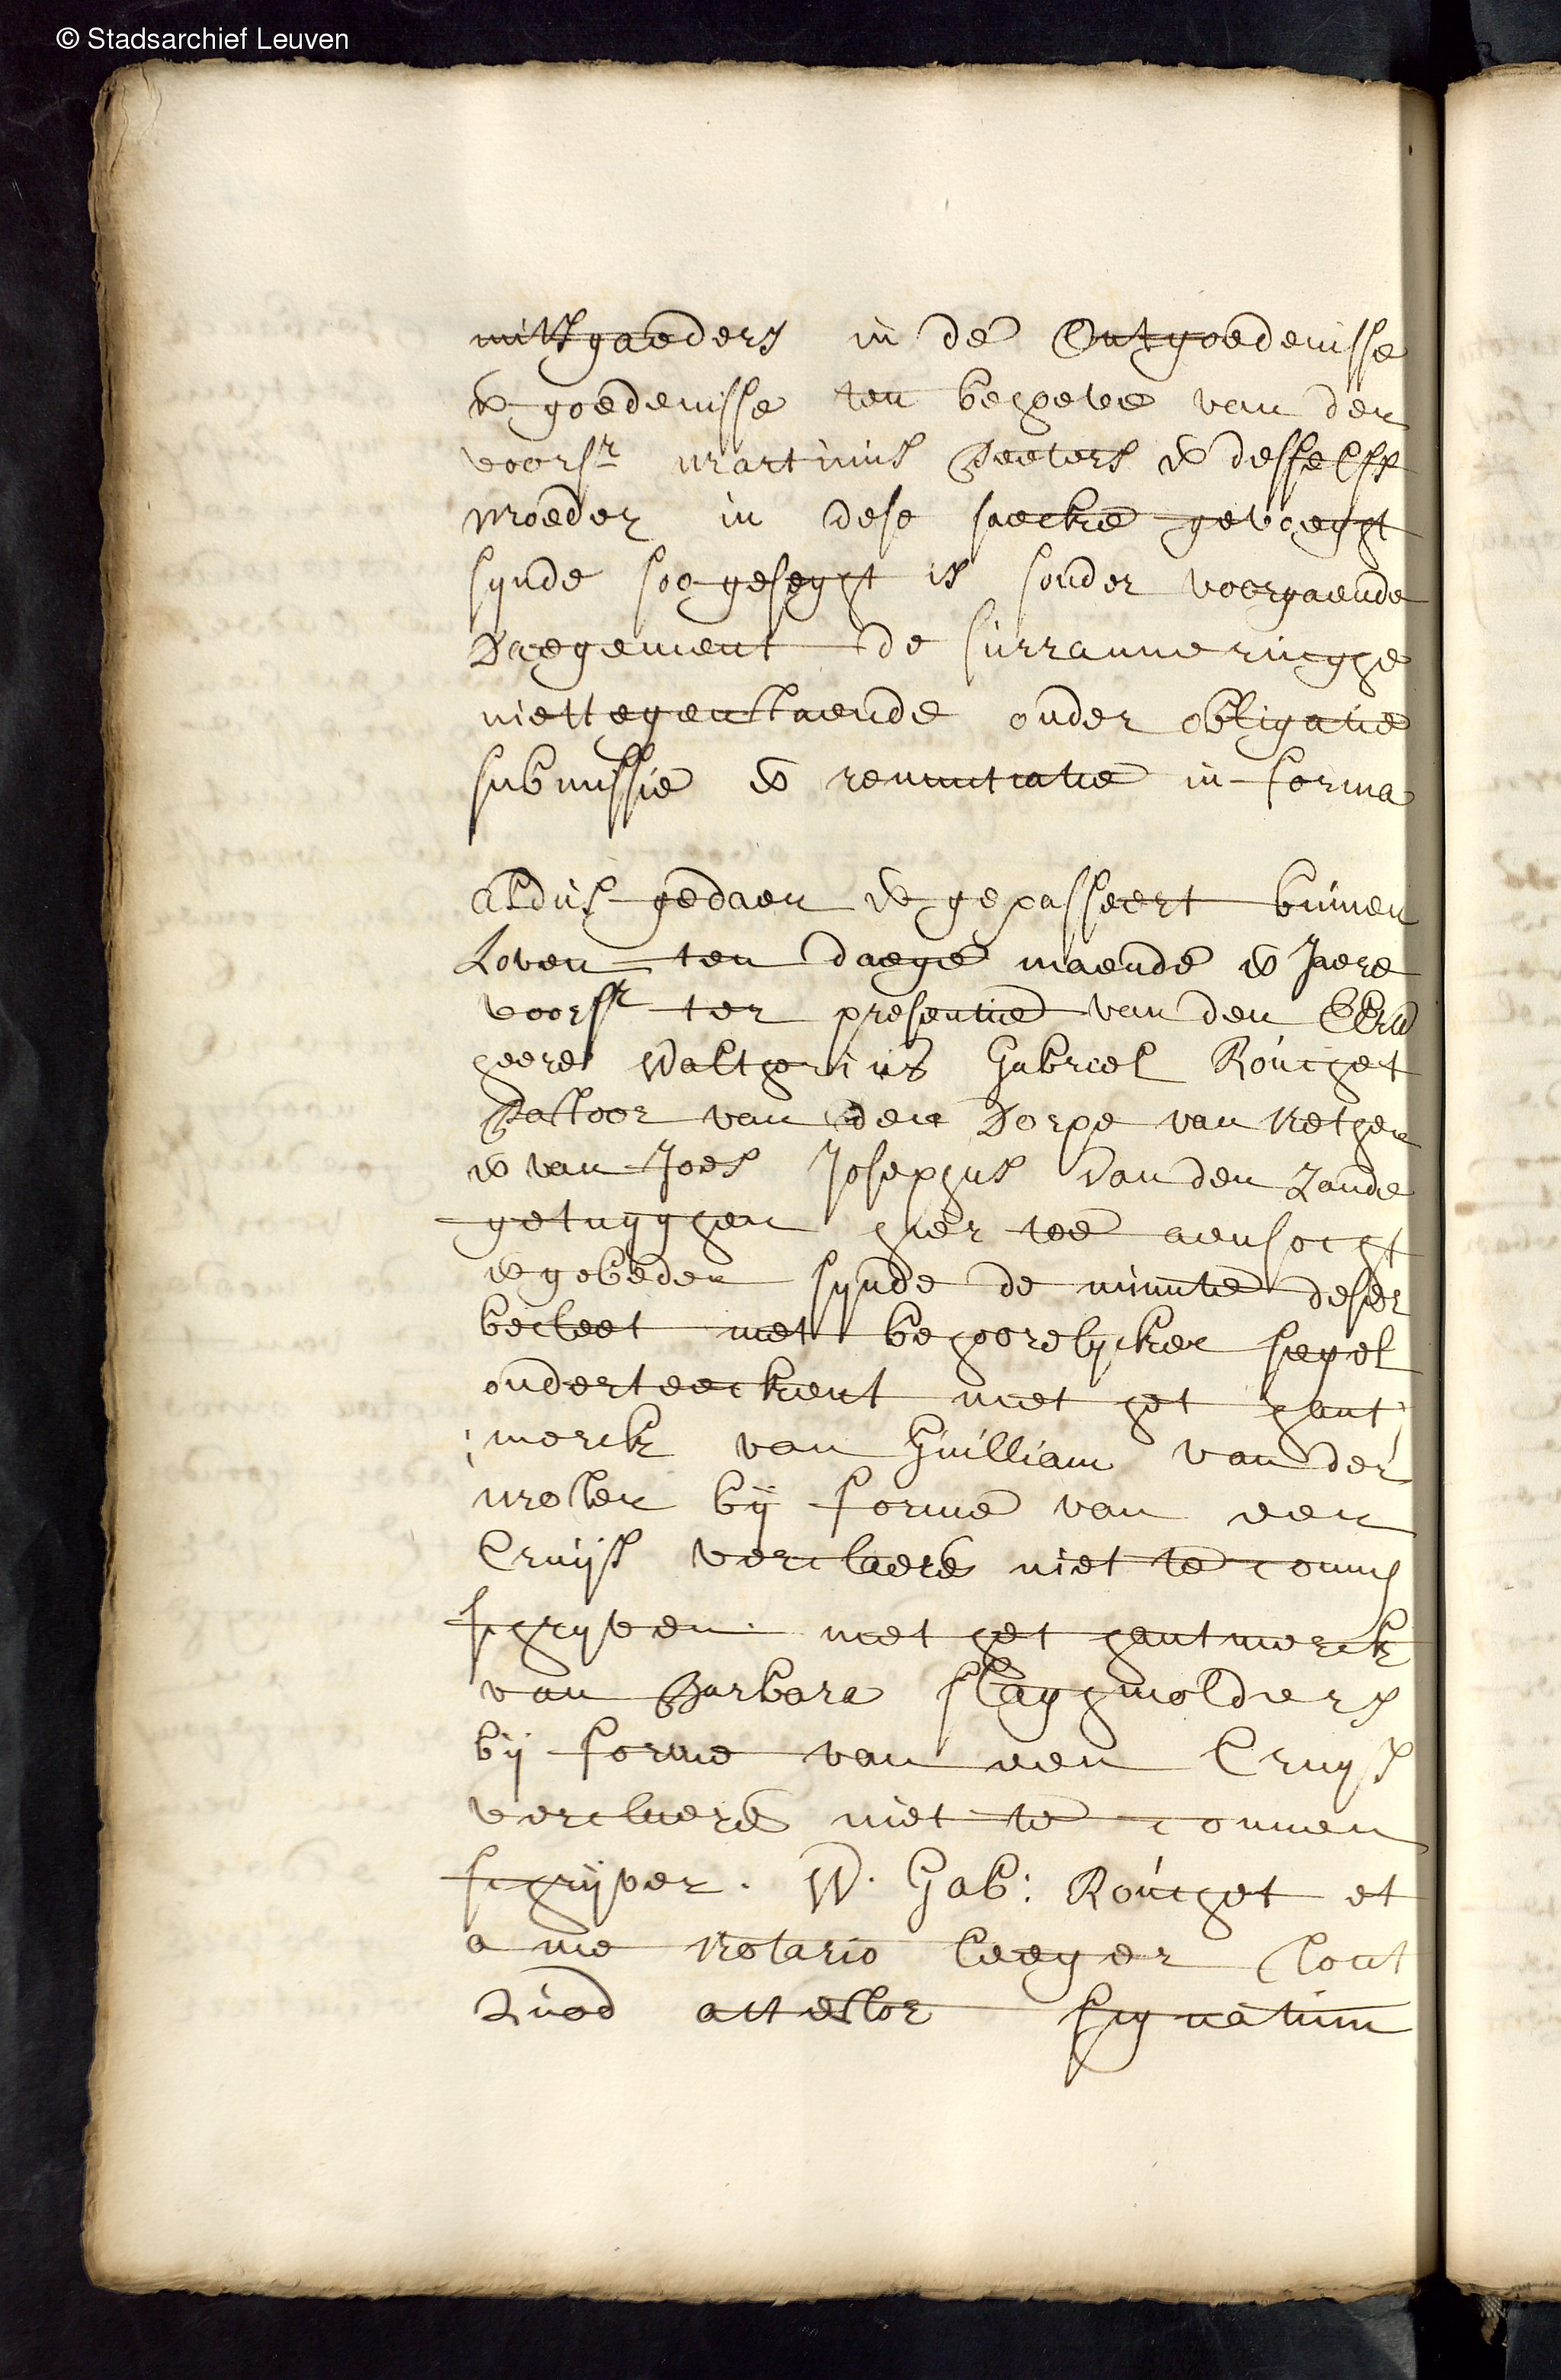 © Stadsarchief Leuven
mitsgaeders in de Ontgoedenisse
& goedenisse ten behoeve van den
voorsr Martinus Peeters & desselfs
Moeder in dese saecke gevoeght
synde soo geseght is sonder voorgaende
Daegement de surranneringhe
niettegenstaende onder obligatie
submissie & renuntiatie in forma
Aldus gedaen & gepasseert binnen
Loven ten daege maende & Jaere
voorsr ter presentie van den Eerw
heere Waltherius Gabriel Rouchet
Pastoor van den Dorpe van Nethen
& van Joes Josephus van den Zande
getuyghen hier toe aensocht
& gebeden synde de minute deser
becleet met behoorelycken segel
onderteeckent met het hant
merck van Guilliam van der
Molen bij forme van een
Cruijs verclaere niet te connen
schryven. met het hantmerck
van Barbara slaghmolders
bij forme van een Cruys
verclaere niet te connen
schrijven. W. Gab: Rouchet et
a me Notario Leeger Cout
Quod attestor signatum